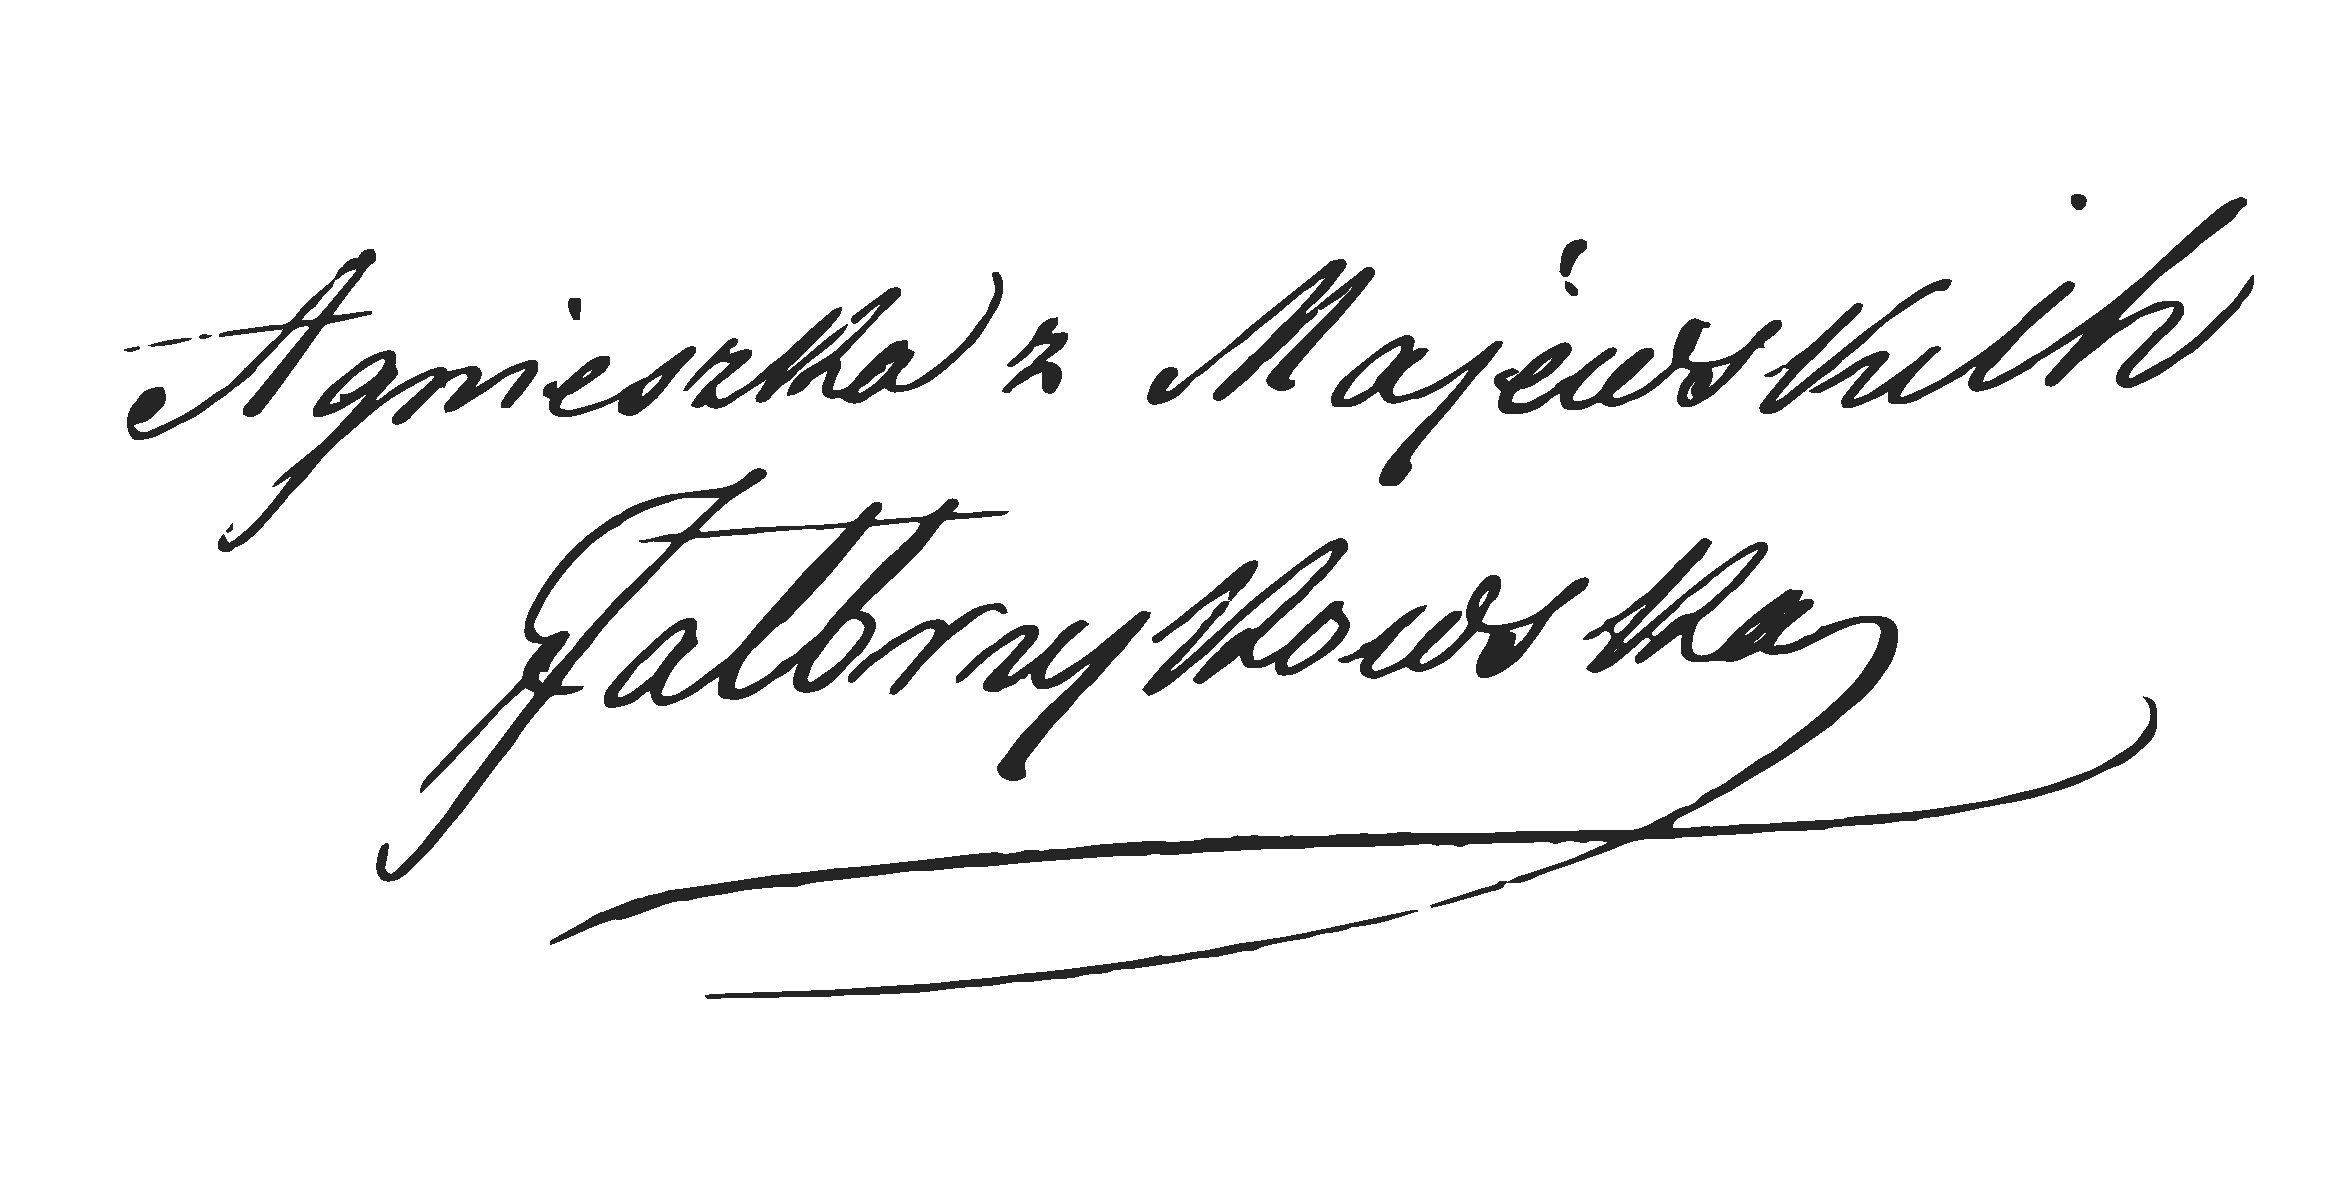 Agnieszka z Majewskich
Jałbrzykowska